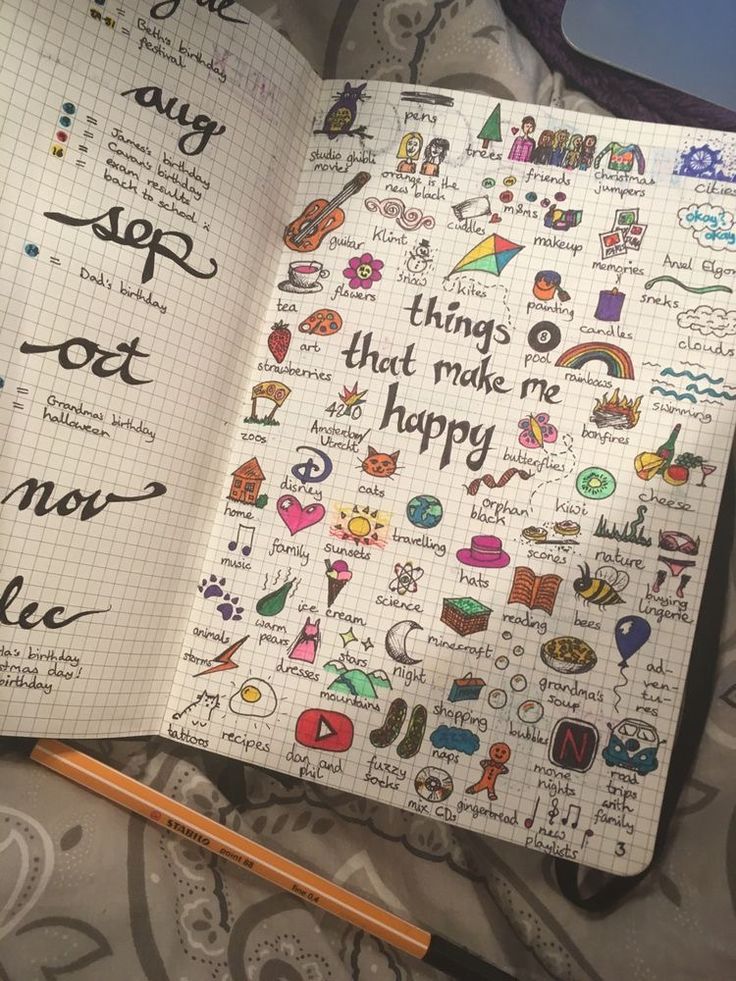 Beth's birthday
festival
aug
=
=
=
16 =
James's birthday
Cavan's birthday
exam results
back to school :(
sep
=
Dad's birthday
oct
=
=
Grandma's birthday
halloween
nov
dec
birthday
day!
birthday
studio ghibli
movies
pens
orange is the
new black
trees
friends
christmas
jumpers
cities
guitar
klimt
snow
cuddles
m&ms
makeup
memories
okay?
okay.
Ansel Elgort
tea
flowers
kites
painting
candles
sneks
clouds
strawberries
art
things
that make me
happy
8
pool
rainbows
swimming
zoos
420
Amsterdam/
Utrecht
butterflies
bonfires
cheese
home
D
disney
cats
orphan
black
kiwi
music
family
sunsets
travelling
hats
scones
nature
buying
lingerie
animals
warm
pears
ice cream
science
minecraft
reading
bees
storms
dresses
stars
night
grandma's
soup
adventures
tattoos
recipes
mountains
shopping
bubbles
dan and
phil
fuzzy
socks
naps
N
movie
nights
road
trips
with
family
mix CDs
gingerbread
new
playlists
3
STABILO
point 88
fine 0.4